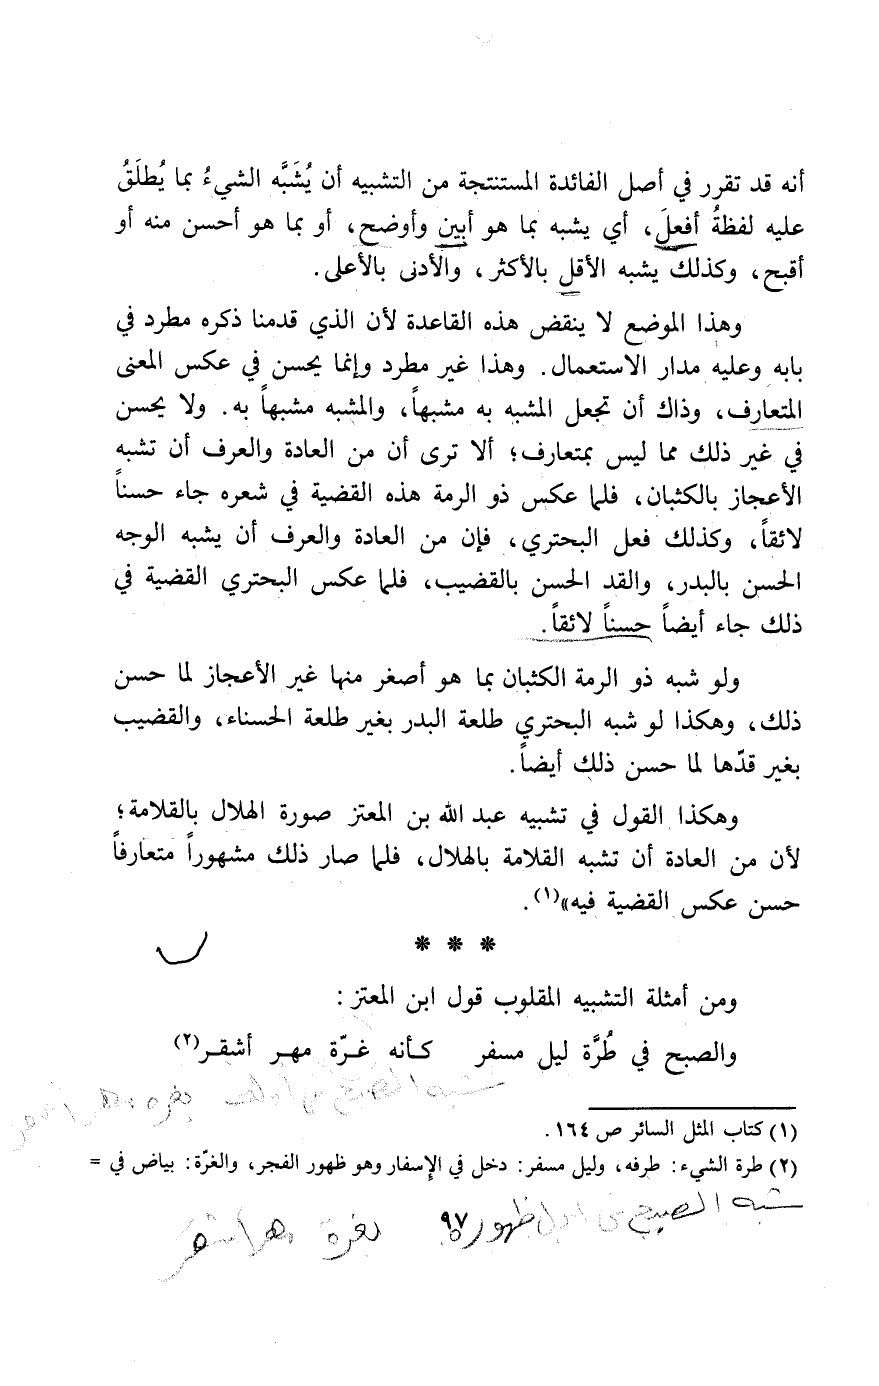 أنه قد تقرر في أصل الفائدة المستنتجة من التشبيه أن يُشَبَّه الشيءُ بما يُطلَقُ
عليه لفظةُ أفعلَ، أي يشبه بما هو أبين وأوضح، أو بما هو أحسن منه أو
أقبح، وكذلك يشبه الأقل بالأكثر، والأدنى بالأعلى.
وهذا الموضع لا ينقض هذه القاعدة لأن الذي قدمنا ذكره مطرد في
بابه وعليه مدار الاستعمال. وهذا غير مطرد وإنما يحسن في عكس المعنى
المتعارف، وذاك أن تجعل المشبه به مشبهاً، والمشبه مشبهاً به. ولا يحسن
في غير ذلك مما ليس بمتعارف؛ ألا ترى أن من العادة والعرف أن تشبه
الأعجاز بالكثبان، فلما عكس ذو الرمة هذه القضية في شعره جاء حسناً
لائقاً، وكذلك فعل البحتري، فإن من العادة والعرف أن يشبه الوجه
الحسن بالبدر، والقد الحسن بالقضيب، فلما عكس البحتري القضية في
ذلك جاء أيضاً حسناً لائقاً.
ولو شبه ذو الرمة الكثبان بما هو أصغر منها غير الأعجاز لما حسن
ذلك، وهكذا لو شبه البحتري طلعة البدر بغير طلعة الحسناء، والقضيب
بغير قدّها لما حسن ذلك أيضاً.
وهكذا القول في تشبيه عبد الله بن المعتز صورة الهلال بالقلامة؛
لأن من العادة أن تشبه القلامة بالهلال، فلما صار ذلك مشهوراً متعارفاً
حسن عكس القضية فيه»(١).
* * *
ومن أمثلة التشبيه المقلوب قول ابن المعتز:
والصبح في طُرَّة ليل مسفر كـأنه غـرّة مهـر أشقـر(٢)
شبه الصبح من أول بغره مهر
(١) كتاب المثل السائر ص ١٦٤.
(٢) طرة الشيء: طرفه، وليل مسفر: دخل في الإسفار وهو ظهور الفجر، والغرّة: بياض في =
شبه الصبح من اول ظهوره بغرة مهر أشقر
٩٧